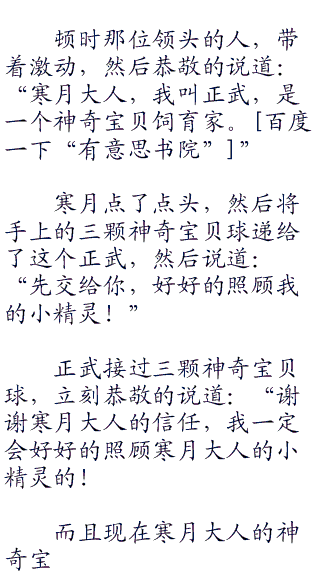 顿时那位领头的人，带
着激动，然后恭敬的说道：
“寒月大人，我叫正武，是
一个神奇宝贝饲育家。[百度
一下“有意思书院”]”
寒月点了点头，然后将
手上的三颗神奇宝贝球递给
了这个正武，然后说道：
“先交给你，好好的照顾我
的小精灵！”
正武接过三颗神奇宝贝
球，立刻恭敬的说道：“谢
谢寒月大人的信任，我一定
会好好的照顾寒月大人的小
精灵的！
而且现在寒月大人的神
奇宝